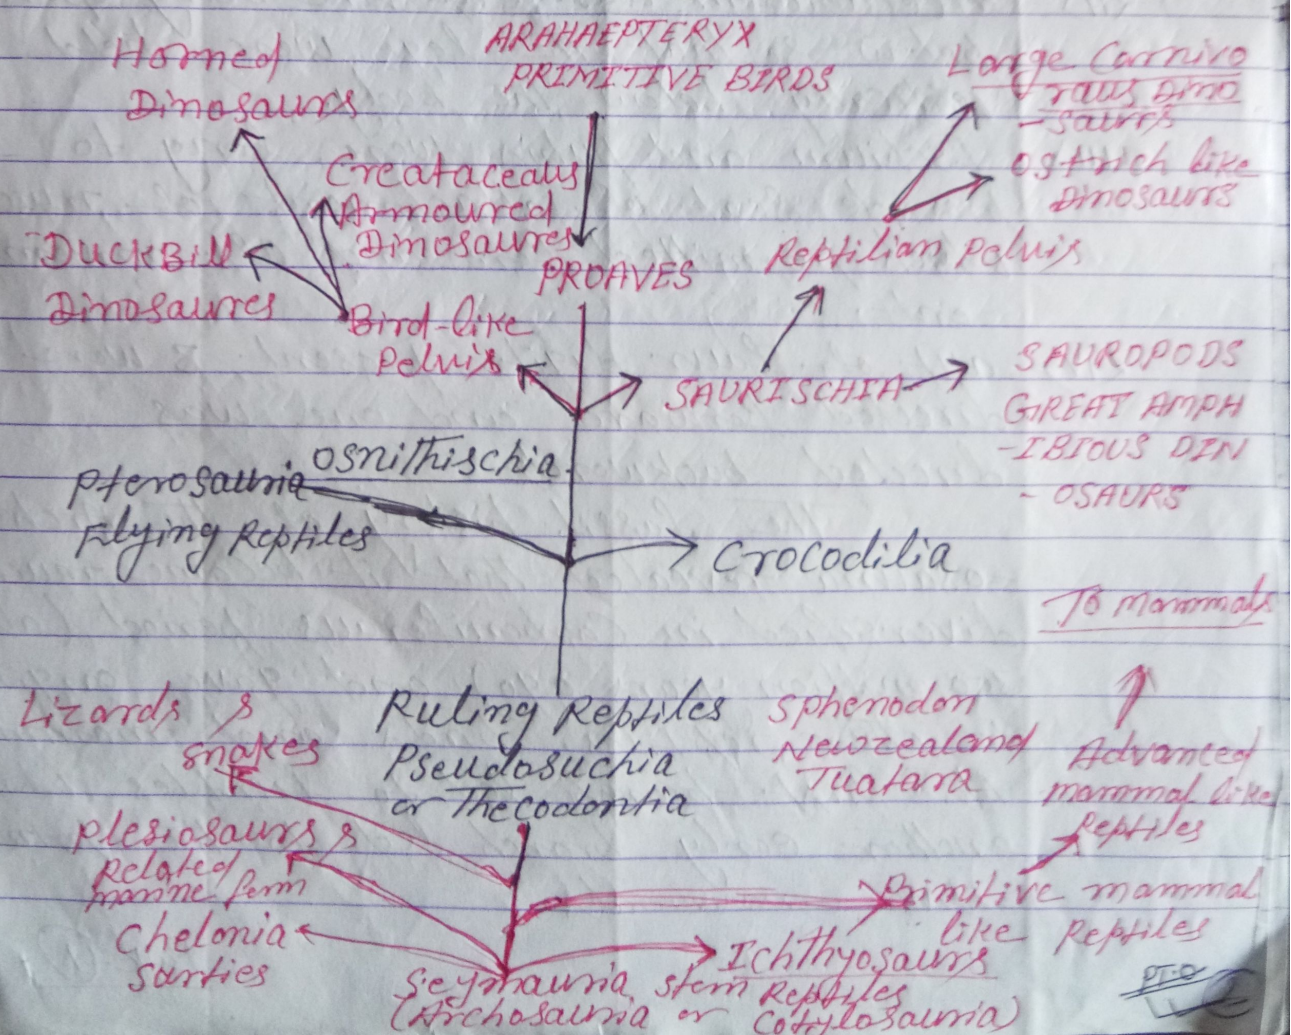 ARAHAEPTERYX
PRIMITIVE BIRDS
Horned
Dinosaurs
Large Carnivo
raus Dino
- saurs
Creataceaus
Armoured
Dinosaures
Ostrich like
Dinosaurs
DuckBill
Dinosaures
PROAVES
Reptilian Pelvis
Bird-like
Pelvis
SAURISCHIA
SAUROPODS
GREAT AMPH
-IBIOUS DIN
- OSAURS
Osnithischia
Pterosauria
Flying Reptiles
Crocodilia
To mammals
Lizards &
snakes
Ruling Reptiles
Pseudosuchia
or Thecodontia
Sphenodon
Newzealand
Tuatara
Advanced
mammal like
Reptiles
Plesiosaurs &
Related
marine form
Primitive mammal
like Reptiles
Chelonia
Surties
Ichthyosaurs
Seymauria stem Reptiles
(Archosauria or Cotylosauria)
PT.O